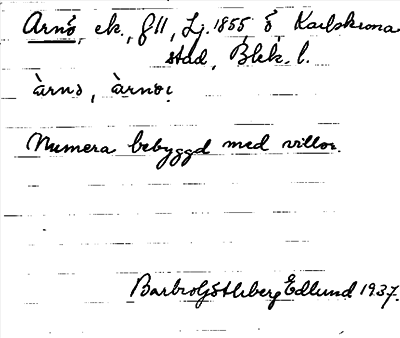 Arnö, ek., f11, Lj. 1855, ö Karlskrona
stad, Blek. l.
àrnə, àrnøı
Numera bebyggd med villor.
Barbro Göthberg Edlund 1937.